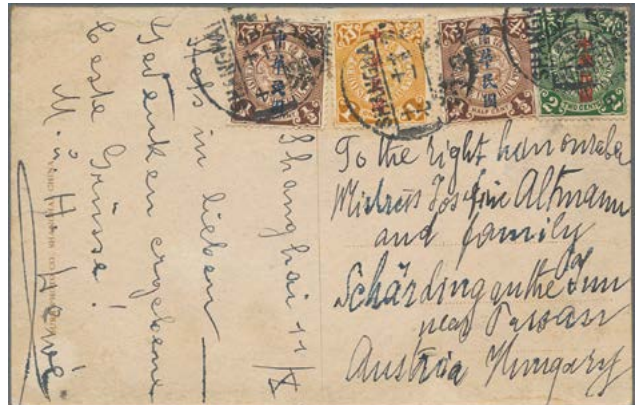 Shanghai 11/X
Stets in lieben
Gedenken ergebene
beste Grüsse!
M. u. H.
To the right honourable
Mistress Josefine Altmann
and family
Schärding on the Inn
near Passau
Austria Hungary
中華民國
中華民國
TWO CENTS
SHANGHAI
SHANGHAI
SHANGHAI